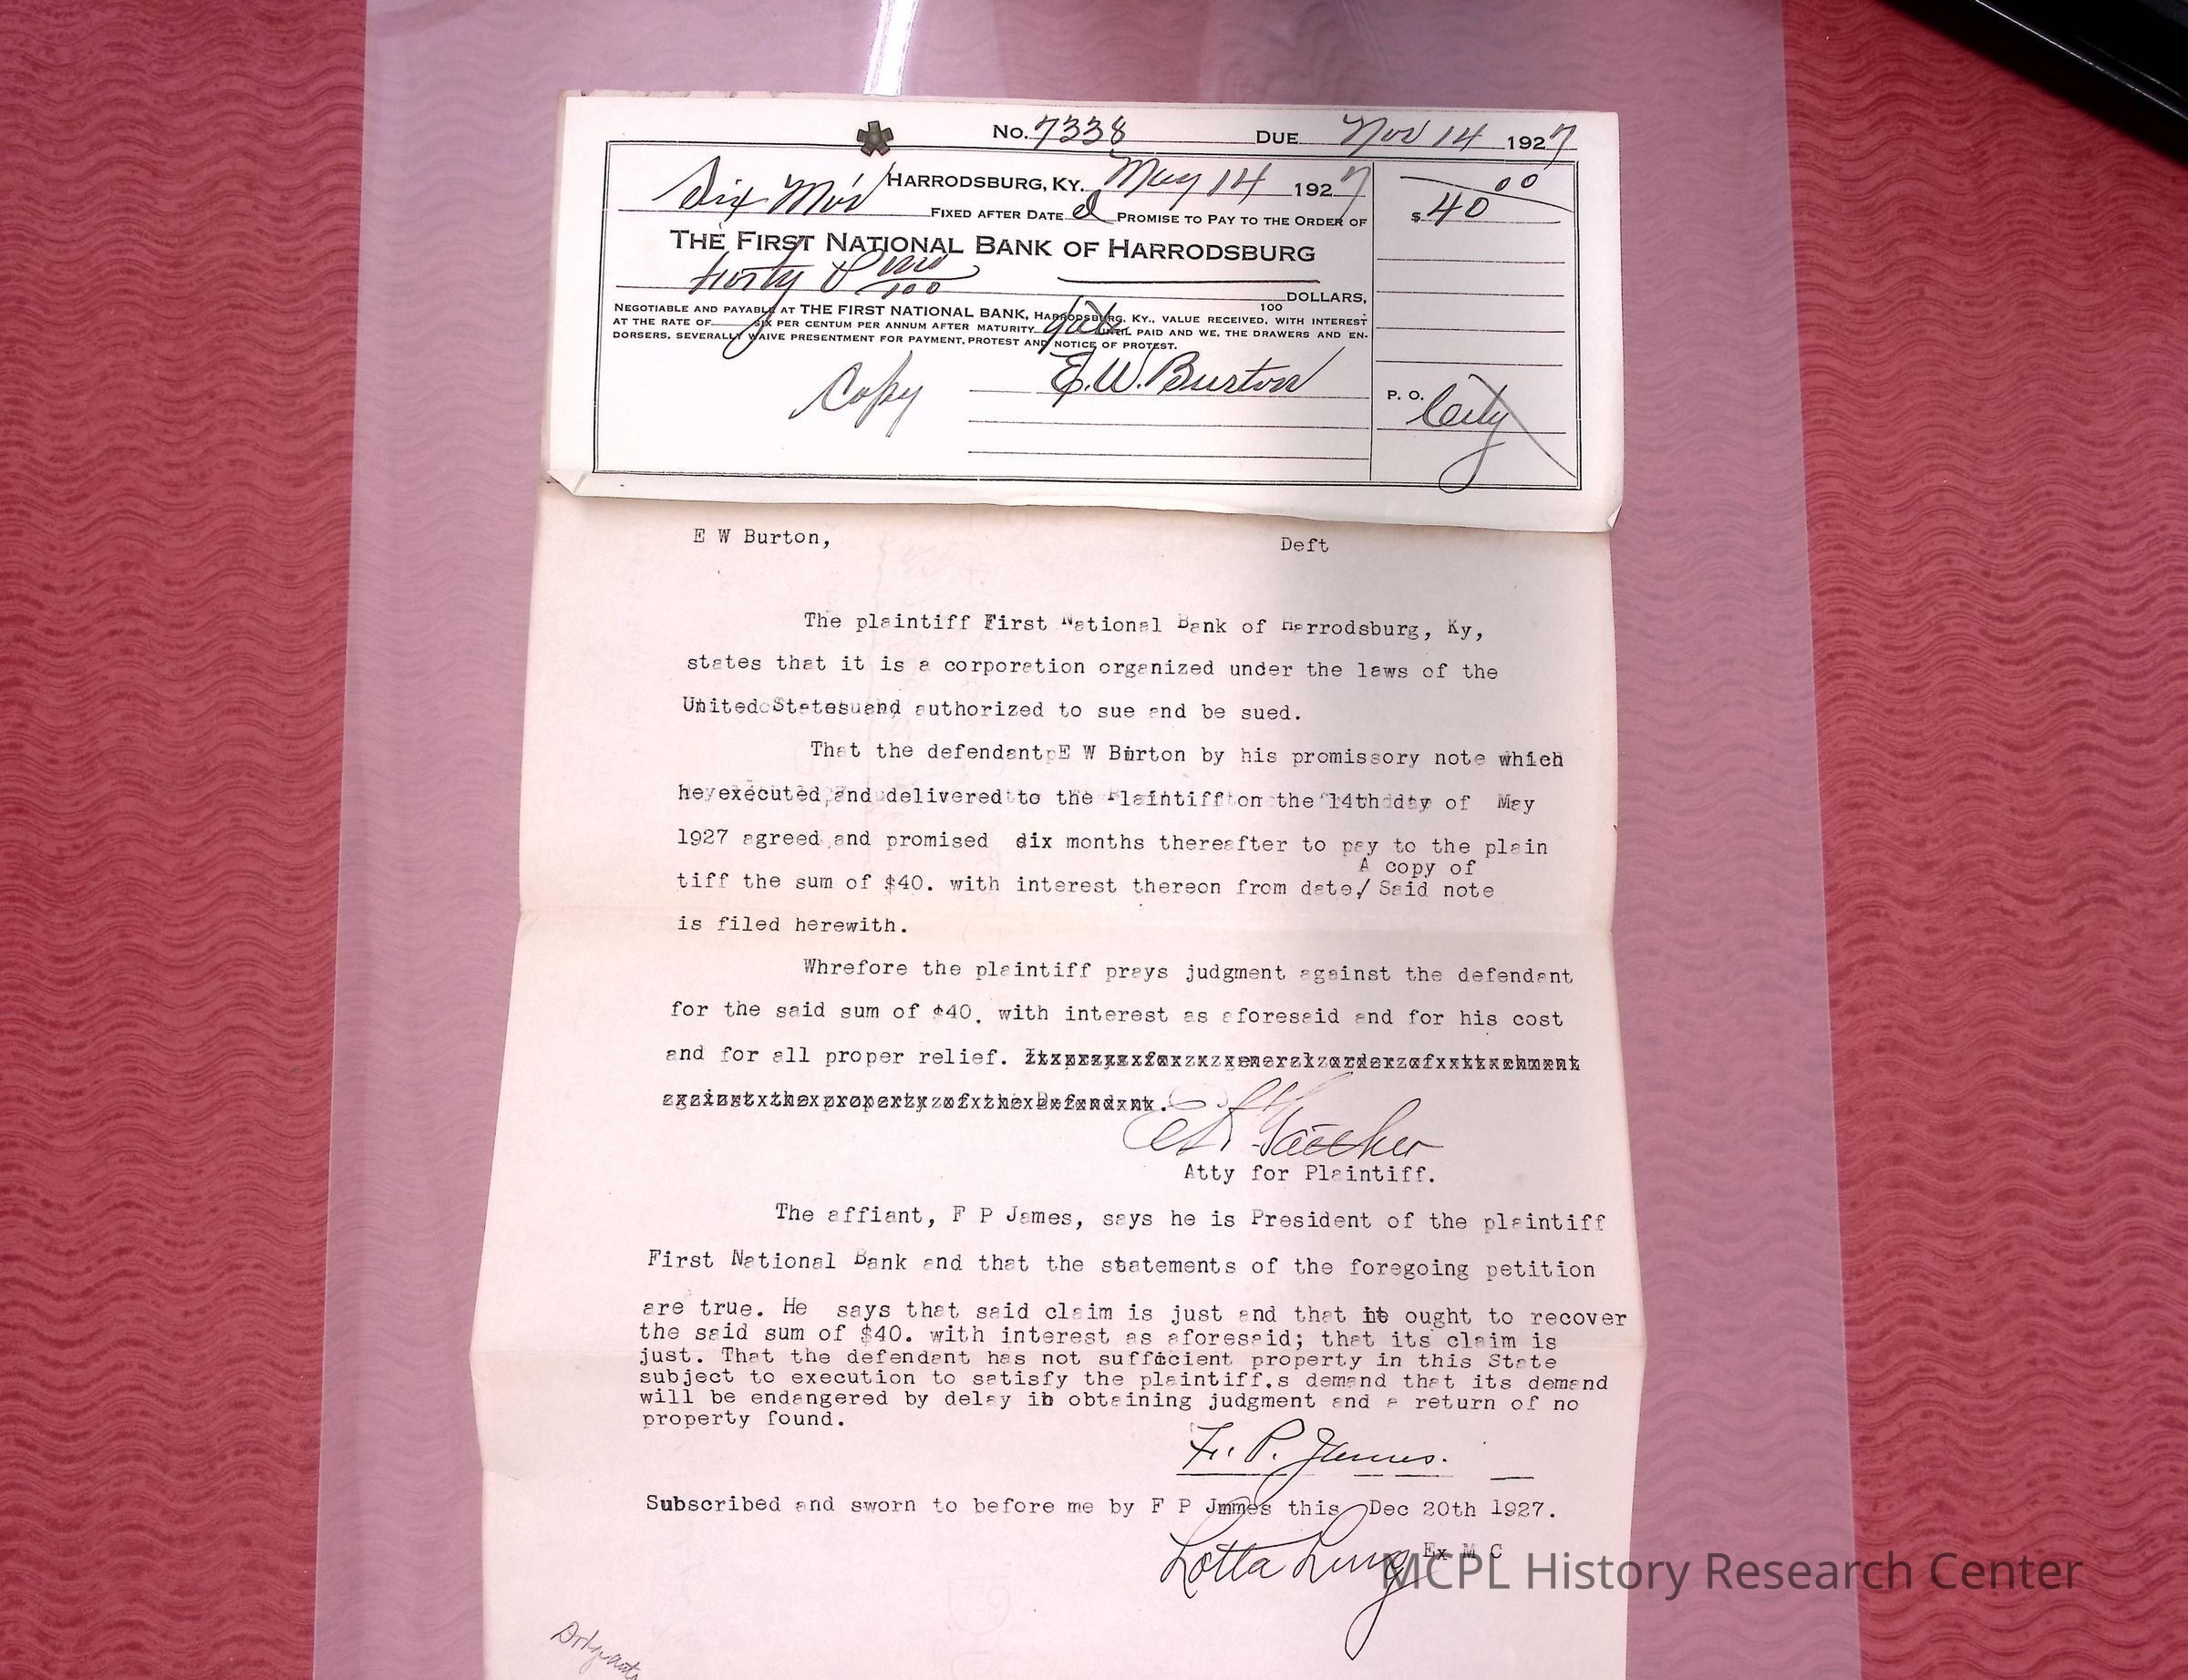 No. 7338 DUE Nov 14 1927
Six Mos HARRODSBURG, KY. May 14 1927
00
FIXED AFTER DATE I PROMISE TO PAY TO THE ORDER OF $40
THE FIRST NATIONAL BANK OF HARRODSBURG
Forty & no/100
100 DOLLARS,
NEGOTIABLE AND PAYABLE AT THE FIRST NATIONAL BANK, HARRODSBURG, KY., VALUE RECEIVED, WITH INTEREST
AT THE RATE OF SIX PER CENTUM PER ANNUM AFTER MATURITY date UNTIL PAID AND WE, THE DRAWERS AND EN-
DORSERS, SEVERALLY WAIVE PRESENTMENT FOR PAYMENT, PROTEST AND NOTICE OF PROTEST.
Copy E.W. Burton P. O. City
E W Burton, Deft
The plaintiff First National Bank of Harrodsburg, Ky,
states that it is a corporation organized under the laws of the
United States and authorized to sue and be sued.
That the defendant E W Burton by his promissory note which
he executed and delivered to the Plaintiff on the 14th day of May
1927 agreed and promised dix months thereafter to pay to the plain
A copy of
tiff the sum of $40. with interest thereon from date/ Said note
is filed herewith.
Whrefore the plaintiff prays judgment against the defendant
for the said sum of $40. with interest as aforesaid and for his cost
and for all proper relief.
Atty for Plaintiff.
The affiant, F P James, says he is President of the plaintiff
First National Bank and that the statements of the foregoing petition
are true. He says that said claim is just and that it ought to recover
the said sum of $40. with interest as aforesaid; that its claim is
just. That the defendant has not sufficient property in this State
subject to execution to satisfy the plaintiff,s demand that its demand
will be endangered by delay in obtaining judgment and a return of no
property found.
F. P. James.
Subscribed and sworn to before me by F P James this Dec 20th 1927.
Lotta Lung Ex M C
MCPL History Research Center